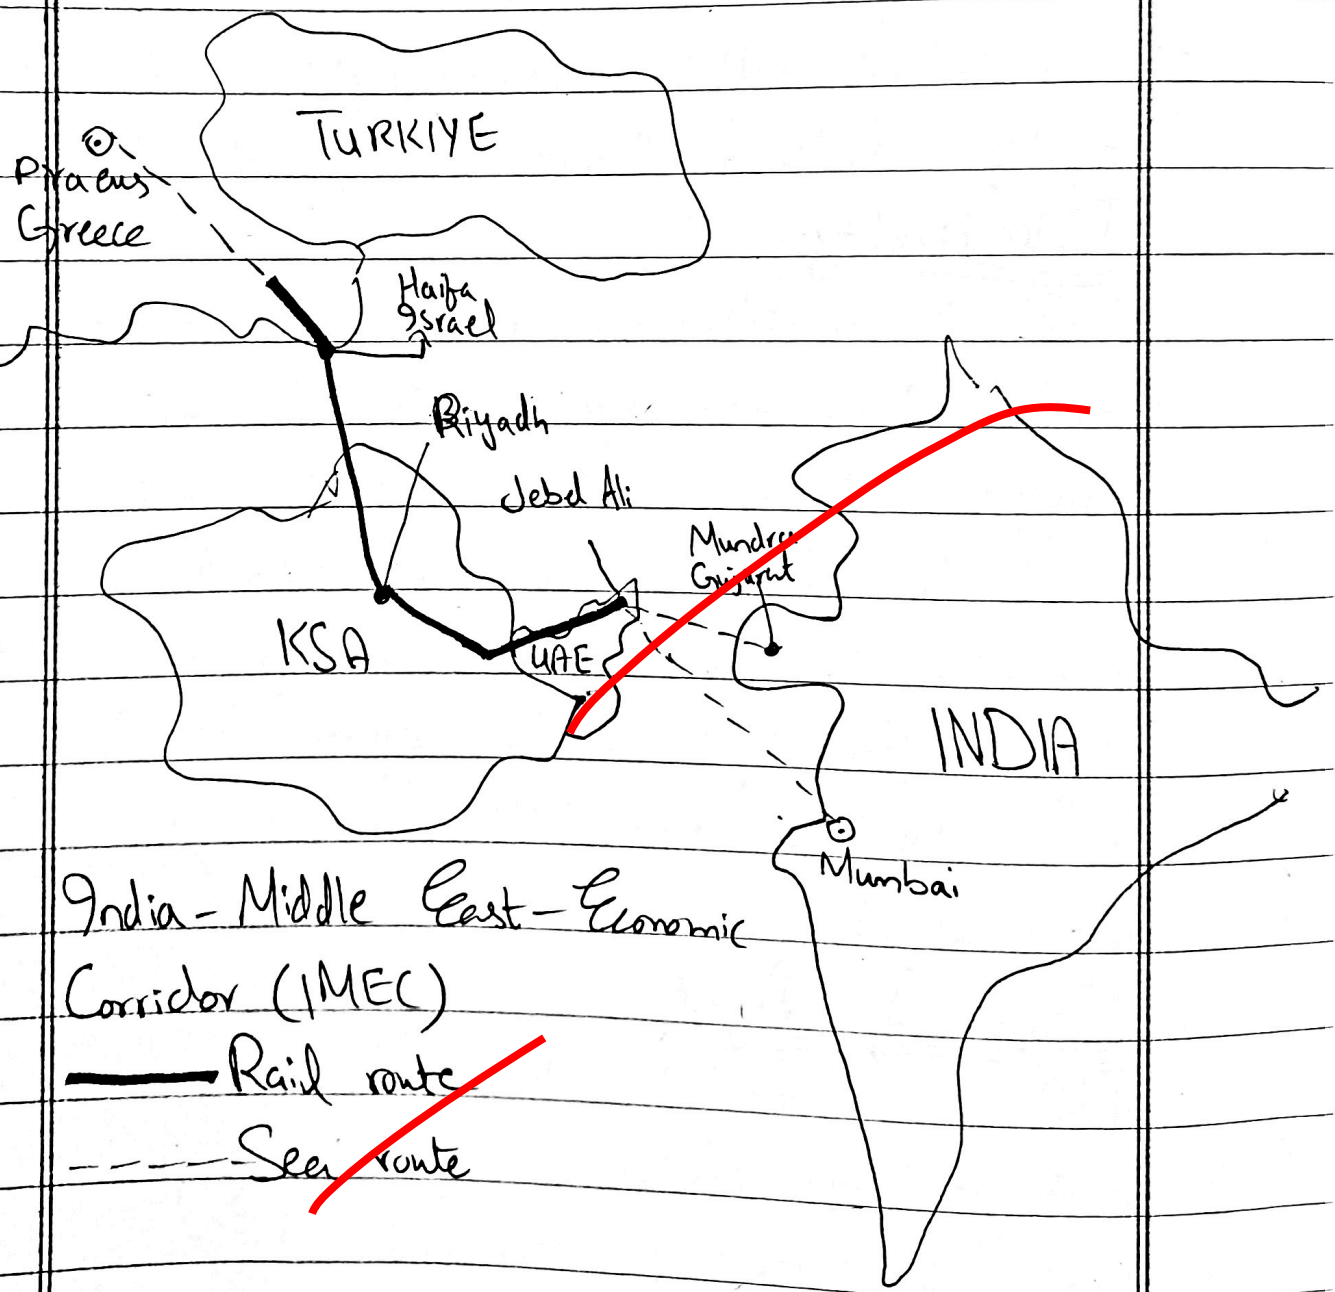 TURKIYE
Piraeus
Greece
Haifa
Israel
Riyadh
Jebel Ali
Mundra
Gujarat
KSA
UAE
INDIA
Mumbai
India - Middle East - Economic
Corridor (IMEC)
Rail route
Sea route